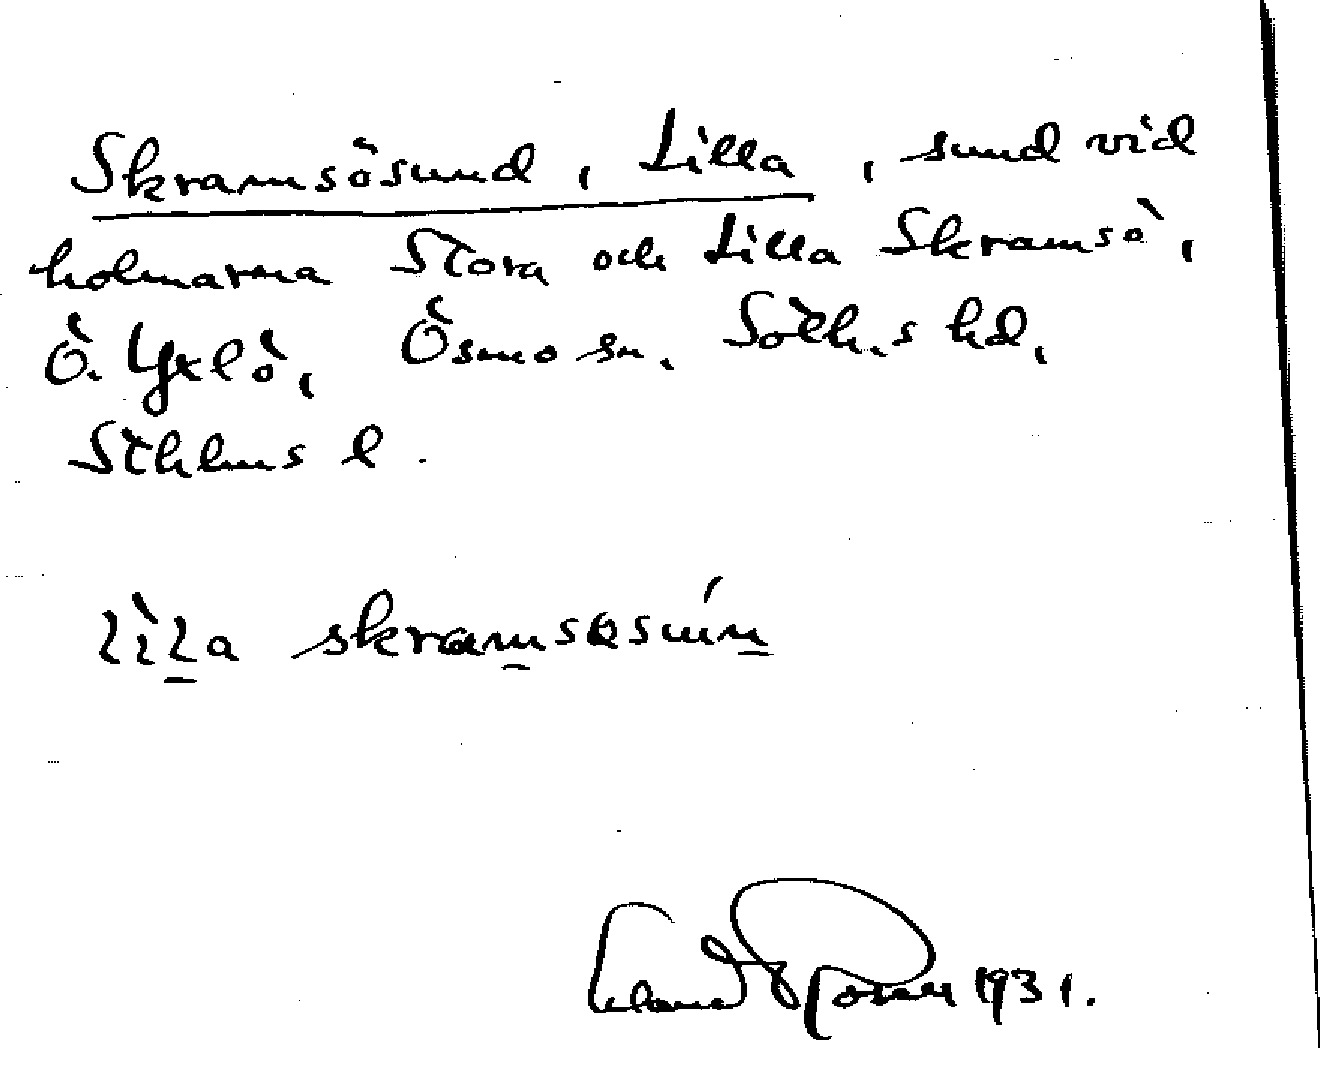 Skramsösund, Lilla, sund vid
holmarna Stora och Lilla Skramsö,
Ö. Yxlö, Ösmo sn, Soth.s hd,
Sthlms l.
skramsɵsún
1931.